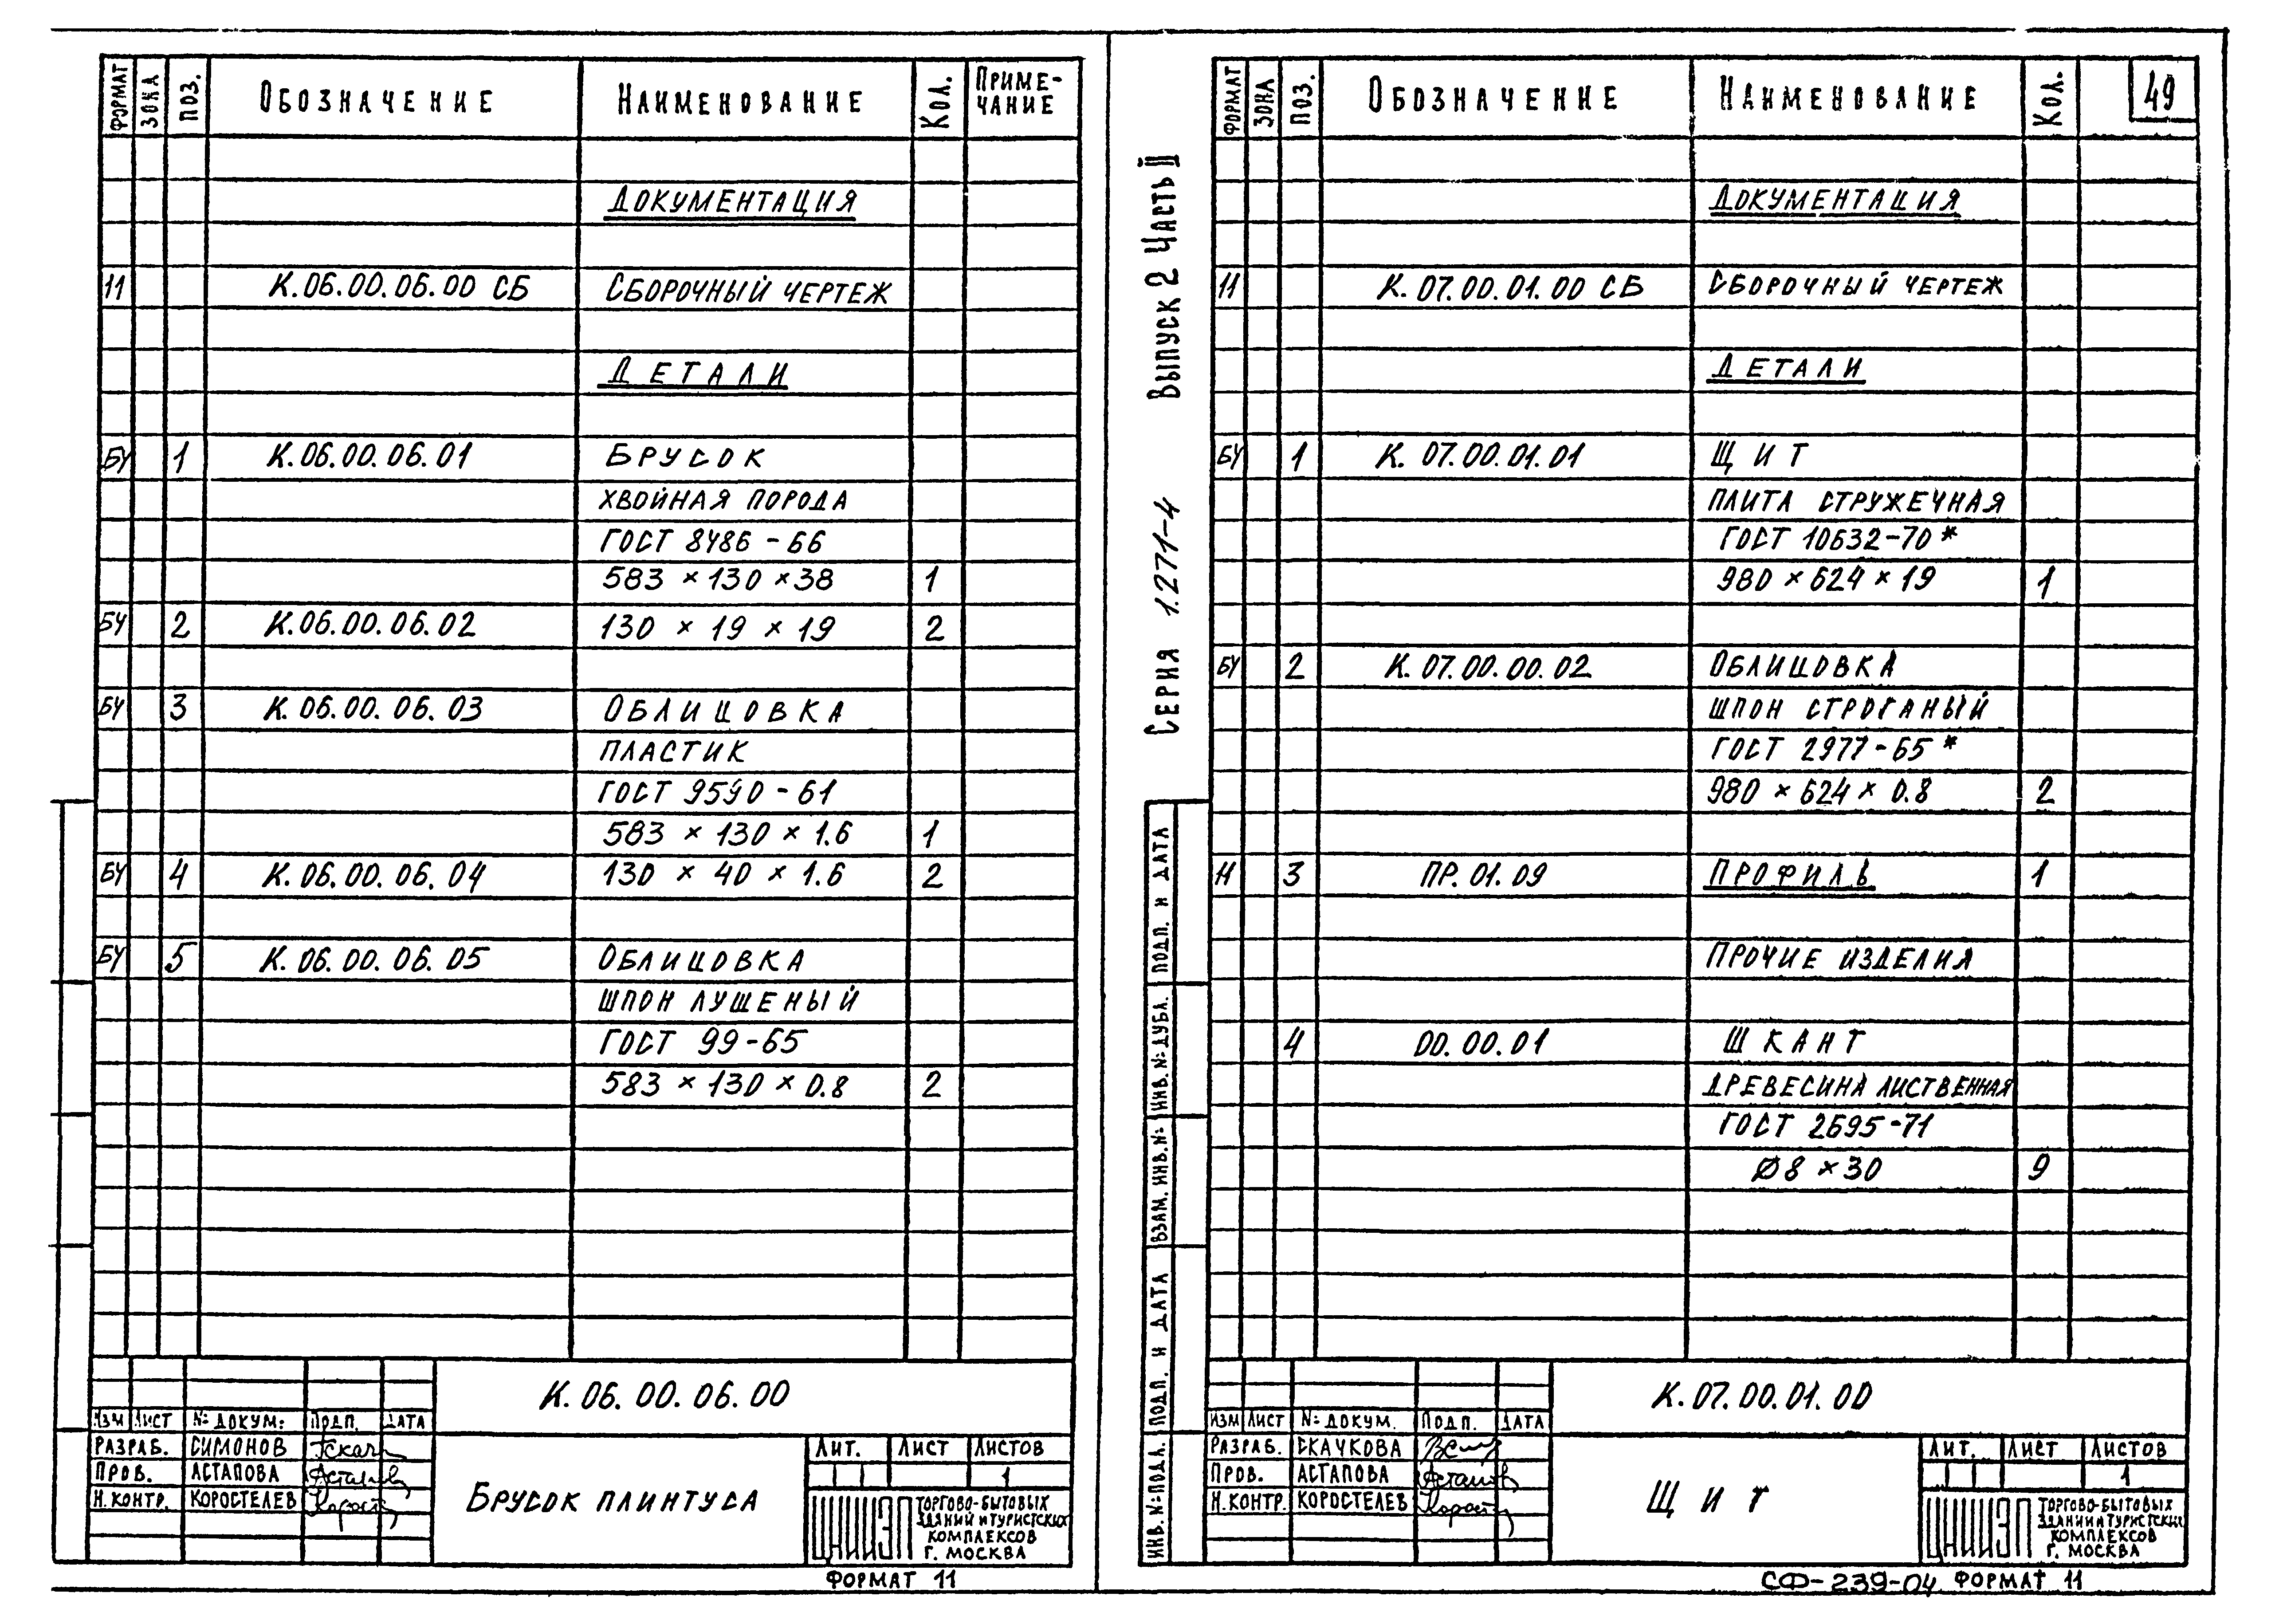 ФОРМАТ ЗОНА ПОЗ. ОБОЗНАЧЕНИЕ НАИМЕНОВАНИЕ КОЛ. ПРИМЕ-
ЧАНИЕ
ДОКУМЕНТАЦИЯ
11 К.06.00.06.00 СБ СБОРОЧНЫЙ ЧЕРТЕЖ
ДЕТАЛИ
БЧ 1 К.06.00.06.01 БРУСОК
ХВОЙНАЯ ПОРОДА
ГОСТ 8486-66
583 × 130 × 38 1
БЧ 2 К.06.00.06.02 130 × 19 × 19 2
БЧ 3 К.06.00.06.03 ОБЛИЦОВКА
ПЛАСТИК
ГОСТ 9590-61
583 × 130 × 1.6 1
БЧ 4 К.06.00.06.04 130 × 40 × 1.6 2
БЧ 5 К.06.00.06.05 ОБЛИЦОВКА
ШПОН ЛУЩЕНЫЙ
ГОСТ 99-65
583 × 130 × 0.8 2
К.06.00.06.00
ИЗМ ЛИСТ № ДОКУМ. ПОДП. ДАТА
РАЗРАБ. СИМОНОВ
ПРОВ. АСТАПОВА
Н.КОНТР. КОРОСТЕЛЕВ
БРУСОК ПЛИНТУСА
ЛИТ. ЛИСТ ЛИСТОВ
1
ЦНИИЭП ТОРГОВО-БЫТОВЫХ
ЗДАНИЙ И ТУРИСТСКИХ
КОМПЛЕКСОВ
Г. МОСКВА
ФОРМАТ 11
СЕРИЯ 1.271-4 ВЫПУСК 2 ЧАСТЬ II
ФОРМАТ ЗОНА ПОЗ. ОБОЗНАЧЕНИЕ НАИМЕНОВАНИЕ КОЛ. 49
ДОКУМЕНТАЦИЯ
11 К.07.00.01.00 СБ СБОРОЧНЫЙ ЧЕРТЕЖ
ДЕТАЛИ
БЧ 1 К.07.00.01.01 ЩИТ
ПЛИТА СТРУЖЕЧНАЯ
ГОСТ 10632-70*
980 × 624 × 19 1
БЧ 2 К.07.00.00.02 ОБЛИЦОВКА
ШПОН СТРОГАНЫЙ
ГОСТ 2977-65*
980 × 624 × 0.8 2
11 3 ПР.01.09 ПРОФИЛЬ 1
ПРОЧИЕ ИЗДЕЛИЯ
4 00.00.01 ШКАНТ
ДРЕВЕСИНА ЛИСТВЕННАЯ
ГОСТ 2695-71
Ø8 × 30 9
ИНВ.№ПОДЛ. ПОДП. И ДАТА ВЗАМ.ИНВ.№ ИНВ.№ДУБЛ. ПОДП. И ДАТА
К.07.00.01.00
ИЗМ ЛИСТ № ДОКУМ. ПОДП. ДАТА
РАЗРАБ. СКАЧКОВА
ПРОВ. АСТАПОВА
Н.КОНТР. КОРОСТЕЛЕВ
ЩИТ
ЛИТ. ЛИСТ ЛИСТОВ
1
ЦНИИЭП ТОРГОВО-БЫТОВЫХ
ЗДАНИЙ И ТУРИСТСКИХ
КОМПЛЕКСОВ
Г. МОСКВА
СФ-239-04 ФОРМАТ 11